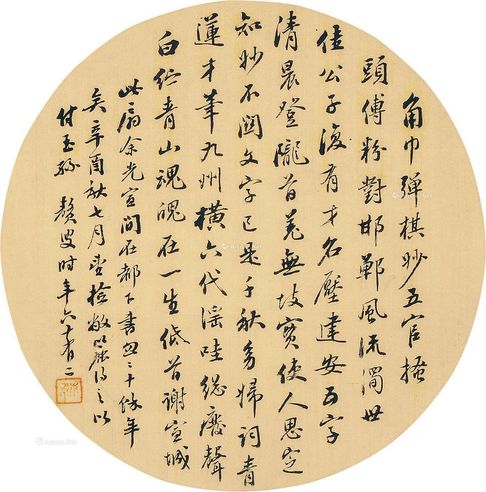 角巾彈棋妙五官搔
頭傅粉對邯鄲風流濁世
佳公子復有才名壓建安五字
清晨登隴首羌無故實使人思定
知妙不關文字已是千秋幼婦詞青
蓮才華九州橫六代淫哇總廢聲
白紵青山魂魄在一生低首謝宣城
此扇余光宣間在都下書三十餘年
矣辛酉秋七月檢敝簏得之以
付玉孫 叟時年六十有二